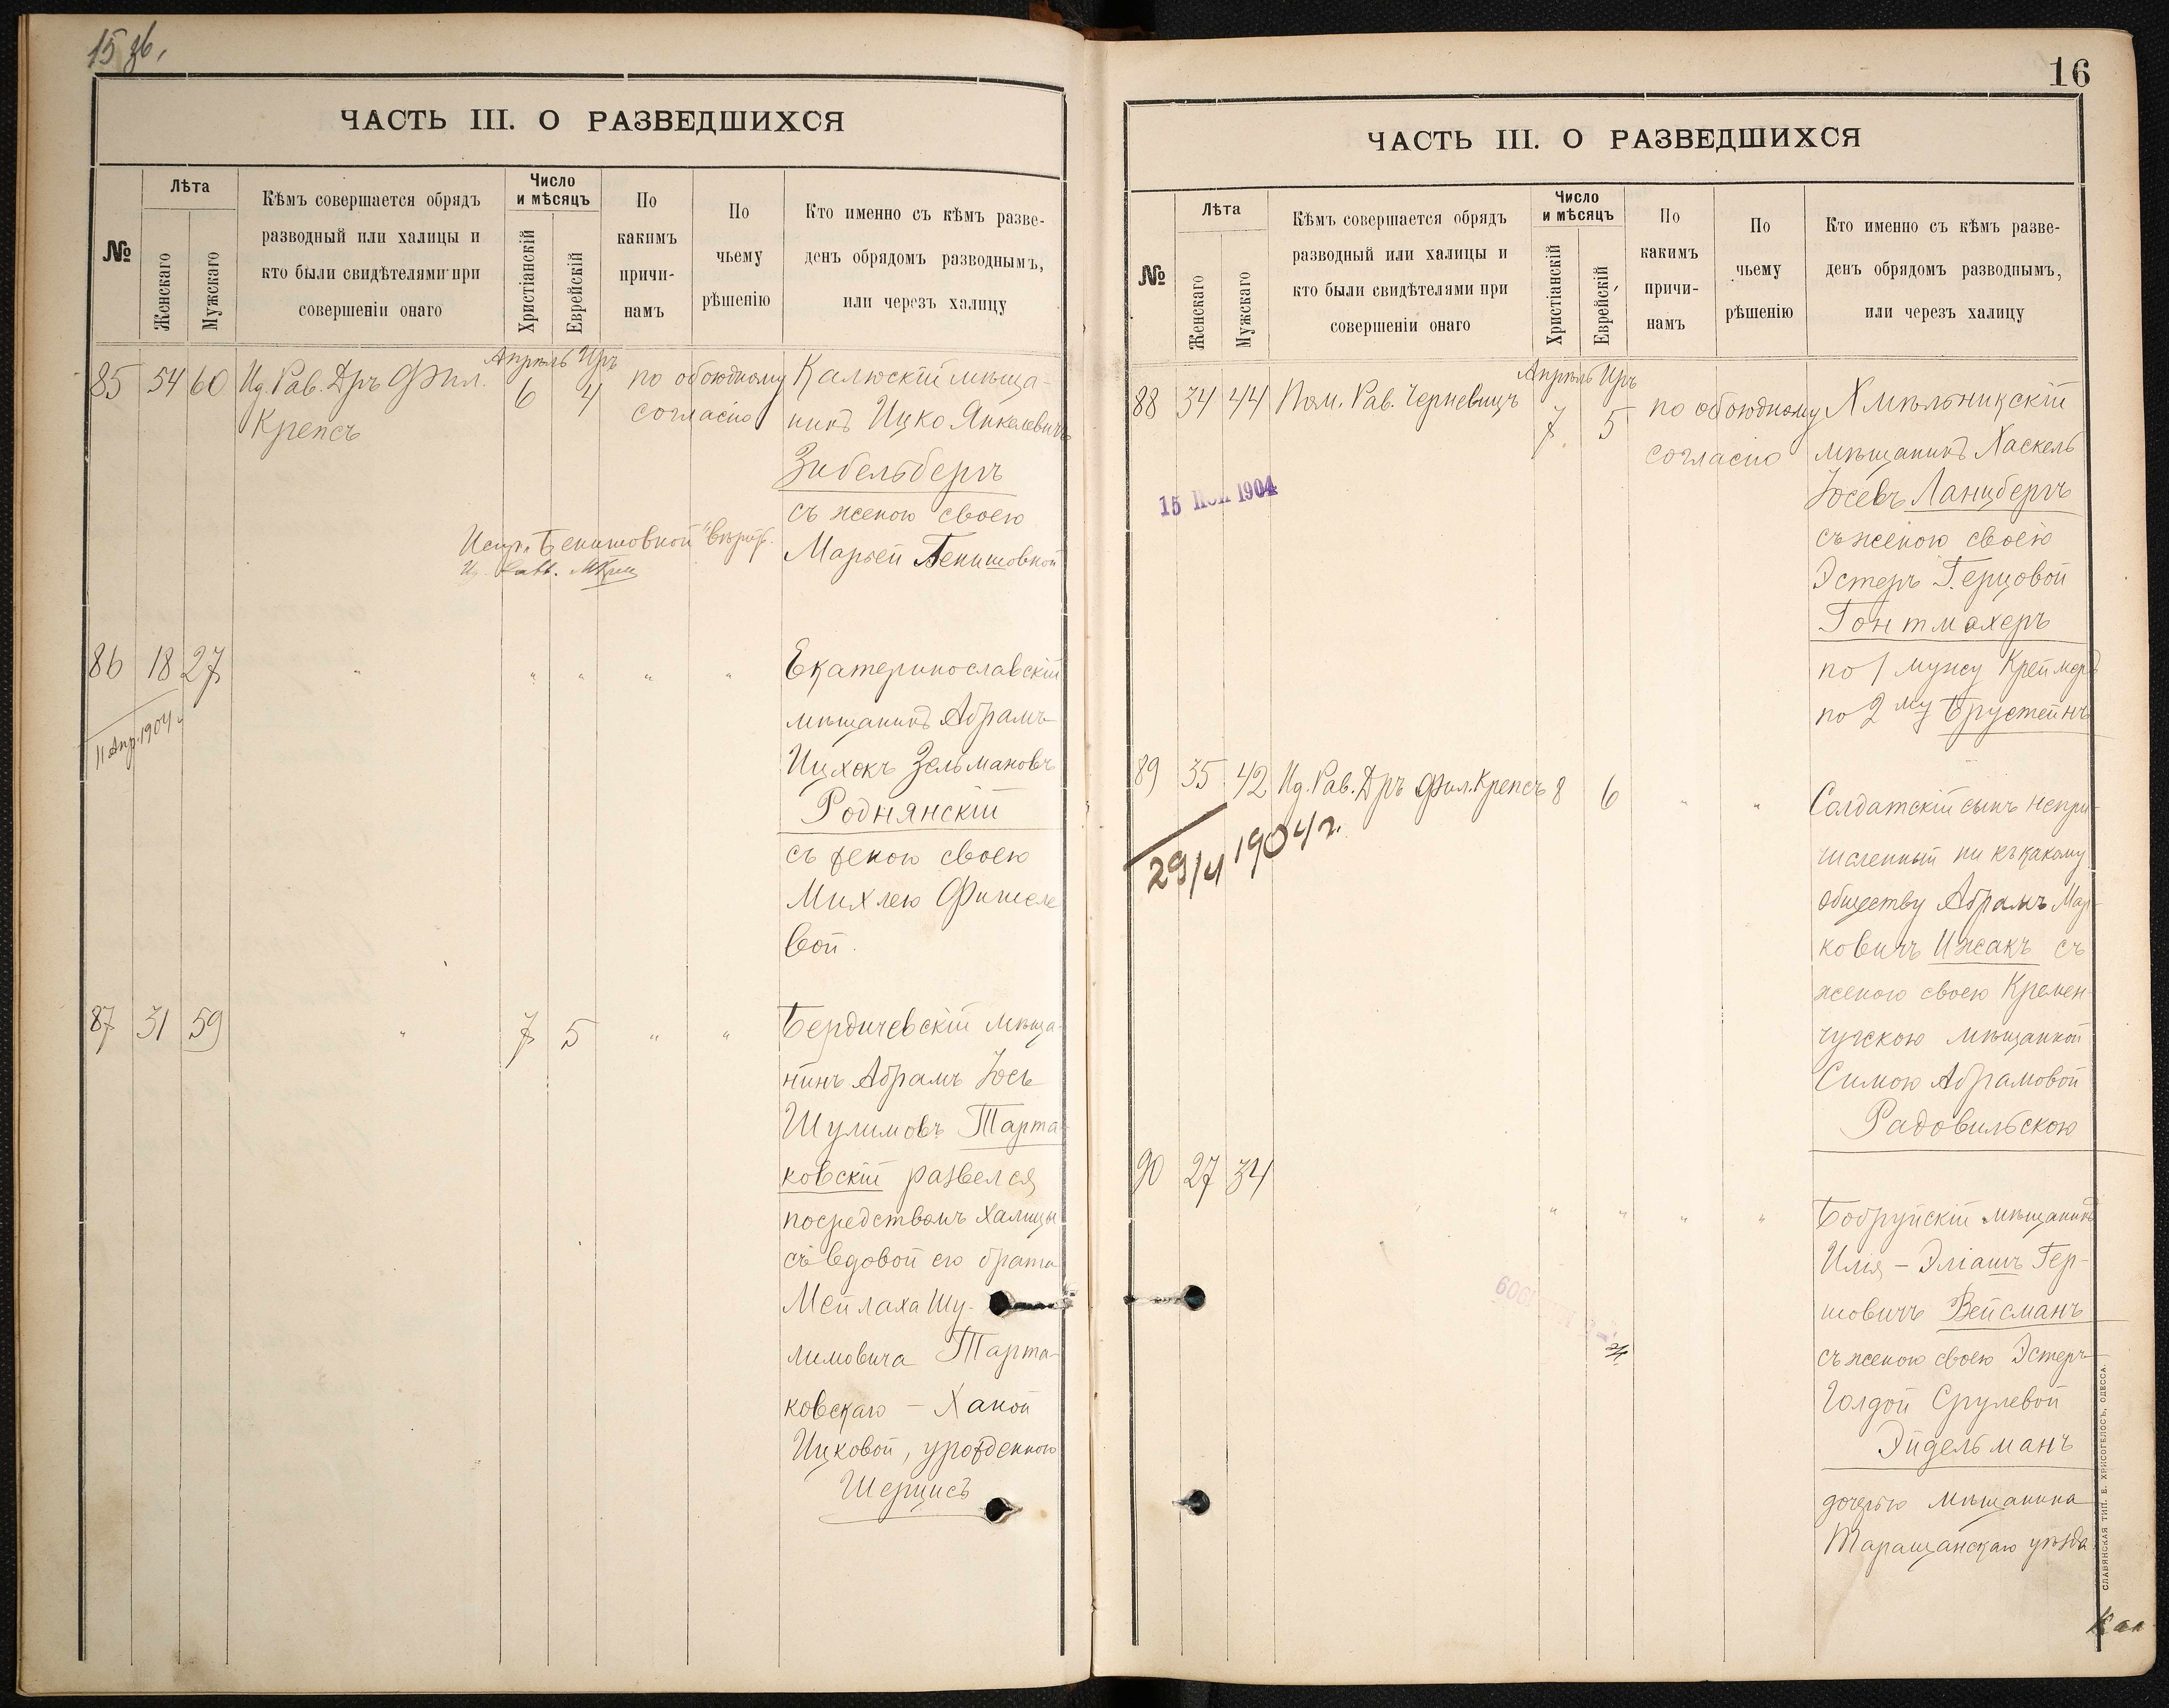 15 об.
ЧАСТЬ III. О РАЗВЕДШИХСЯ
№
Лѣта
Женскаго
Мужскаго
Кѣмъ совершается обрядъ
разводный или халицы и
кто были свидѣтелями при
совершеніи онаго
Число
и мѣсяцъ
Христіанскій
Еврейскій
По
какимъ
причи-
намъ
По
чьему
рѣшенію
Кто именно съ кѣмъ разве-
денъ обрядомъ разводнымъ,
или черезъ халицу
85 54 60 Ид. Рав. Дръ Фил.
Крепсъ
Апрѣль Иръ
6 4
по обоюдному
согласію
Калюскій мѣща-
нинъ Ицко Янкелевичъ
Зибельбергъ
съ женою своею
Марьей Бенишовной
Испр. "Бенишовной" вѣрить.
86 18 27 " " " " "
11 Апр. 1904 г.
Екатеринославскій
мѣщанинъ Абрамъ
Ицхокъ Зельмановъ
Роднянскій
съ женою своею
Михлею Фишеле
вой.
87 31 59 " 7 5 " "
Бердичевскій мѣща-
нинъ Абрамъ Іось
Шулимовъ Тарта-
ковскій развелся
посредствомъ халицы
съ вдовой его брата
Мейлаха Шу-
лимовича Тарта-
ковскаго - Ханой
Ицковой, урожденною
Шерцисъ
16
ЧАСТЬ III. О РАЗВЕДШИХСЯ
№
Лѣта
Женскаго
Мужскаго
Кѣмъ совершается обрядъ
разводный или халицы и
кто были свидѣтелями при
совершеніи онаго
Число
и мѣсяцъ
Христіанскій
Еврейскій
По
какимъ
причи-
намъ
По
чьему
рѣшенію
Кто именно съ кѣмъ разве-
денъ обрядомъ разводнымъ,
или черезъ халицу
88 34 44 Пом. Рав. Черневицъ
Апрѣль Иръ
7 5
по обоюдному
согласію
15 1904
Хмѣльникскій
мѣщанинъ Хаскель
Іосевъ Ланцбергъ
съ женою своею
Эстеръ Герцовой
Гонтмахеръ
по 1 мужу Креймеръ
по 2 му Бруштейнъ
89 35 42 Ид. Рав. Дръ Фил. Крепсъ 8 6 " "
29/4 1904 г.
Солдатскій сынъ непри-
численный ни къ какому
обществу Абрамъ Мар-
ковичъ Ижакъ съ
женою своею Кремен-
чугскою мѣщанкой
Симою Абрамовой
Радовильскою
90 27 34 " " " " "
Бобруйскій мѣщанинъ
Илія - Эліашъ Гер-
шовичъ Вейсманъ
съ женою своею Эстеръ
Голдой Срулевой
Эйдельманъ
дочерью мѣщанина
Таращанскаго уѣзда
СЛАВЯНСКАЯ ТИП. Е. ХРИСОГЕЛОСЪ, ОДЕССА.